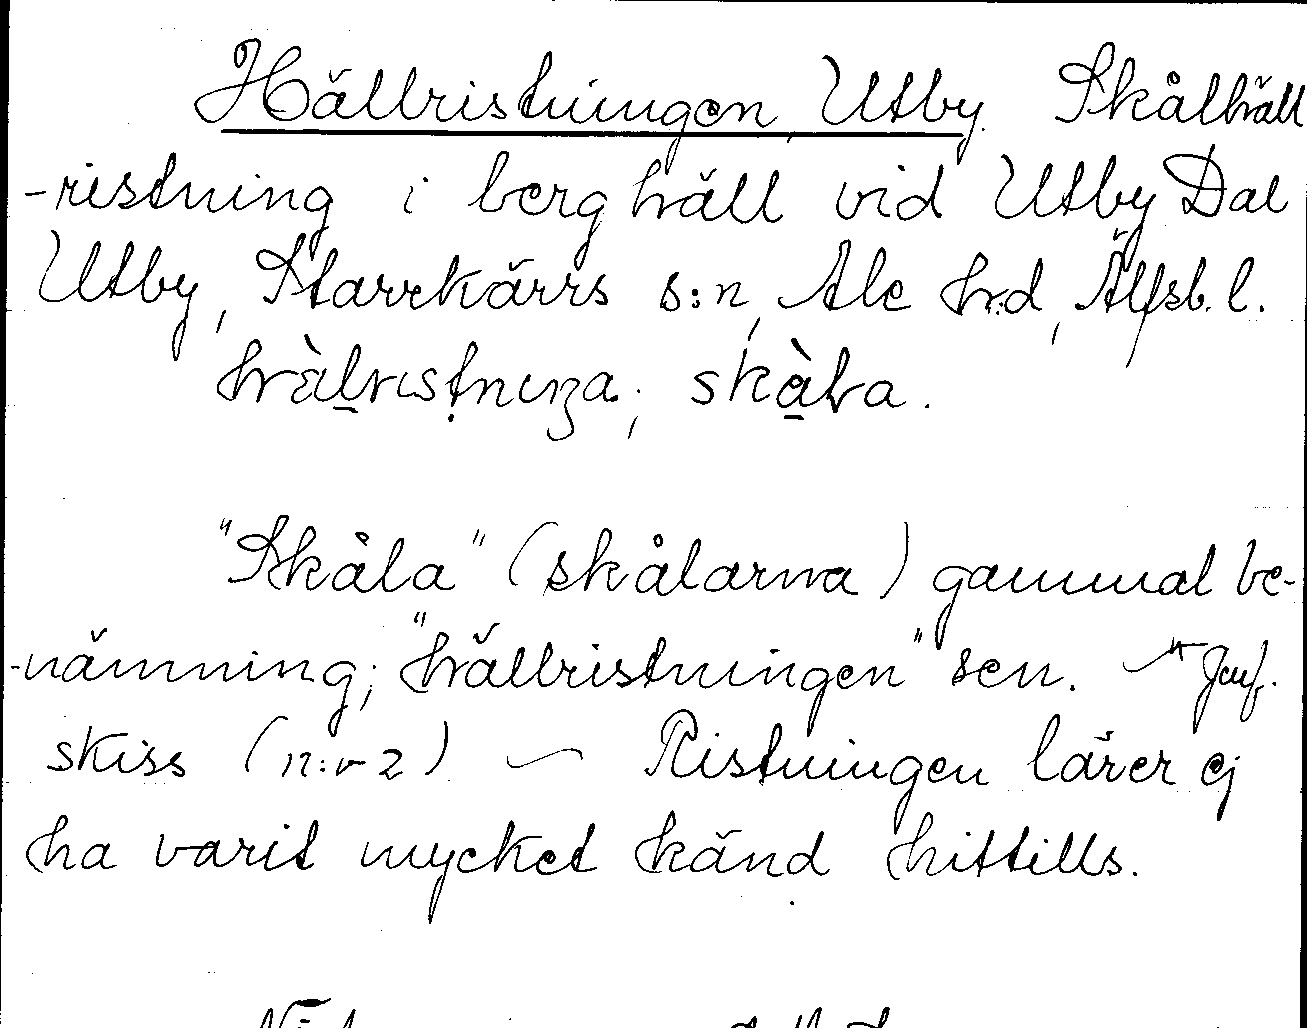 Hällristningen, Utby. Skålhäll
-ristning i berghäll vid Utby Dal
Utby, Starrkärrs s:n, Ale h:d, Älfsb. l.
skåla.
"Skåla" (skålarna) gammal be-
-nämning; "hällristningen" sen. Jmf.
skiss (n:r 2) — Ristningen lärer ej
ha varit mycket känd hittills.